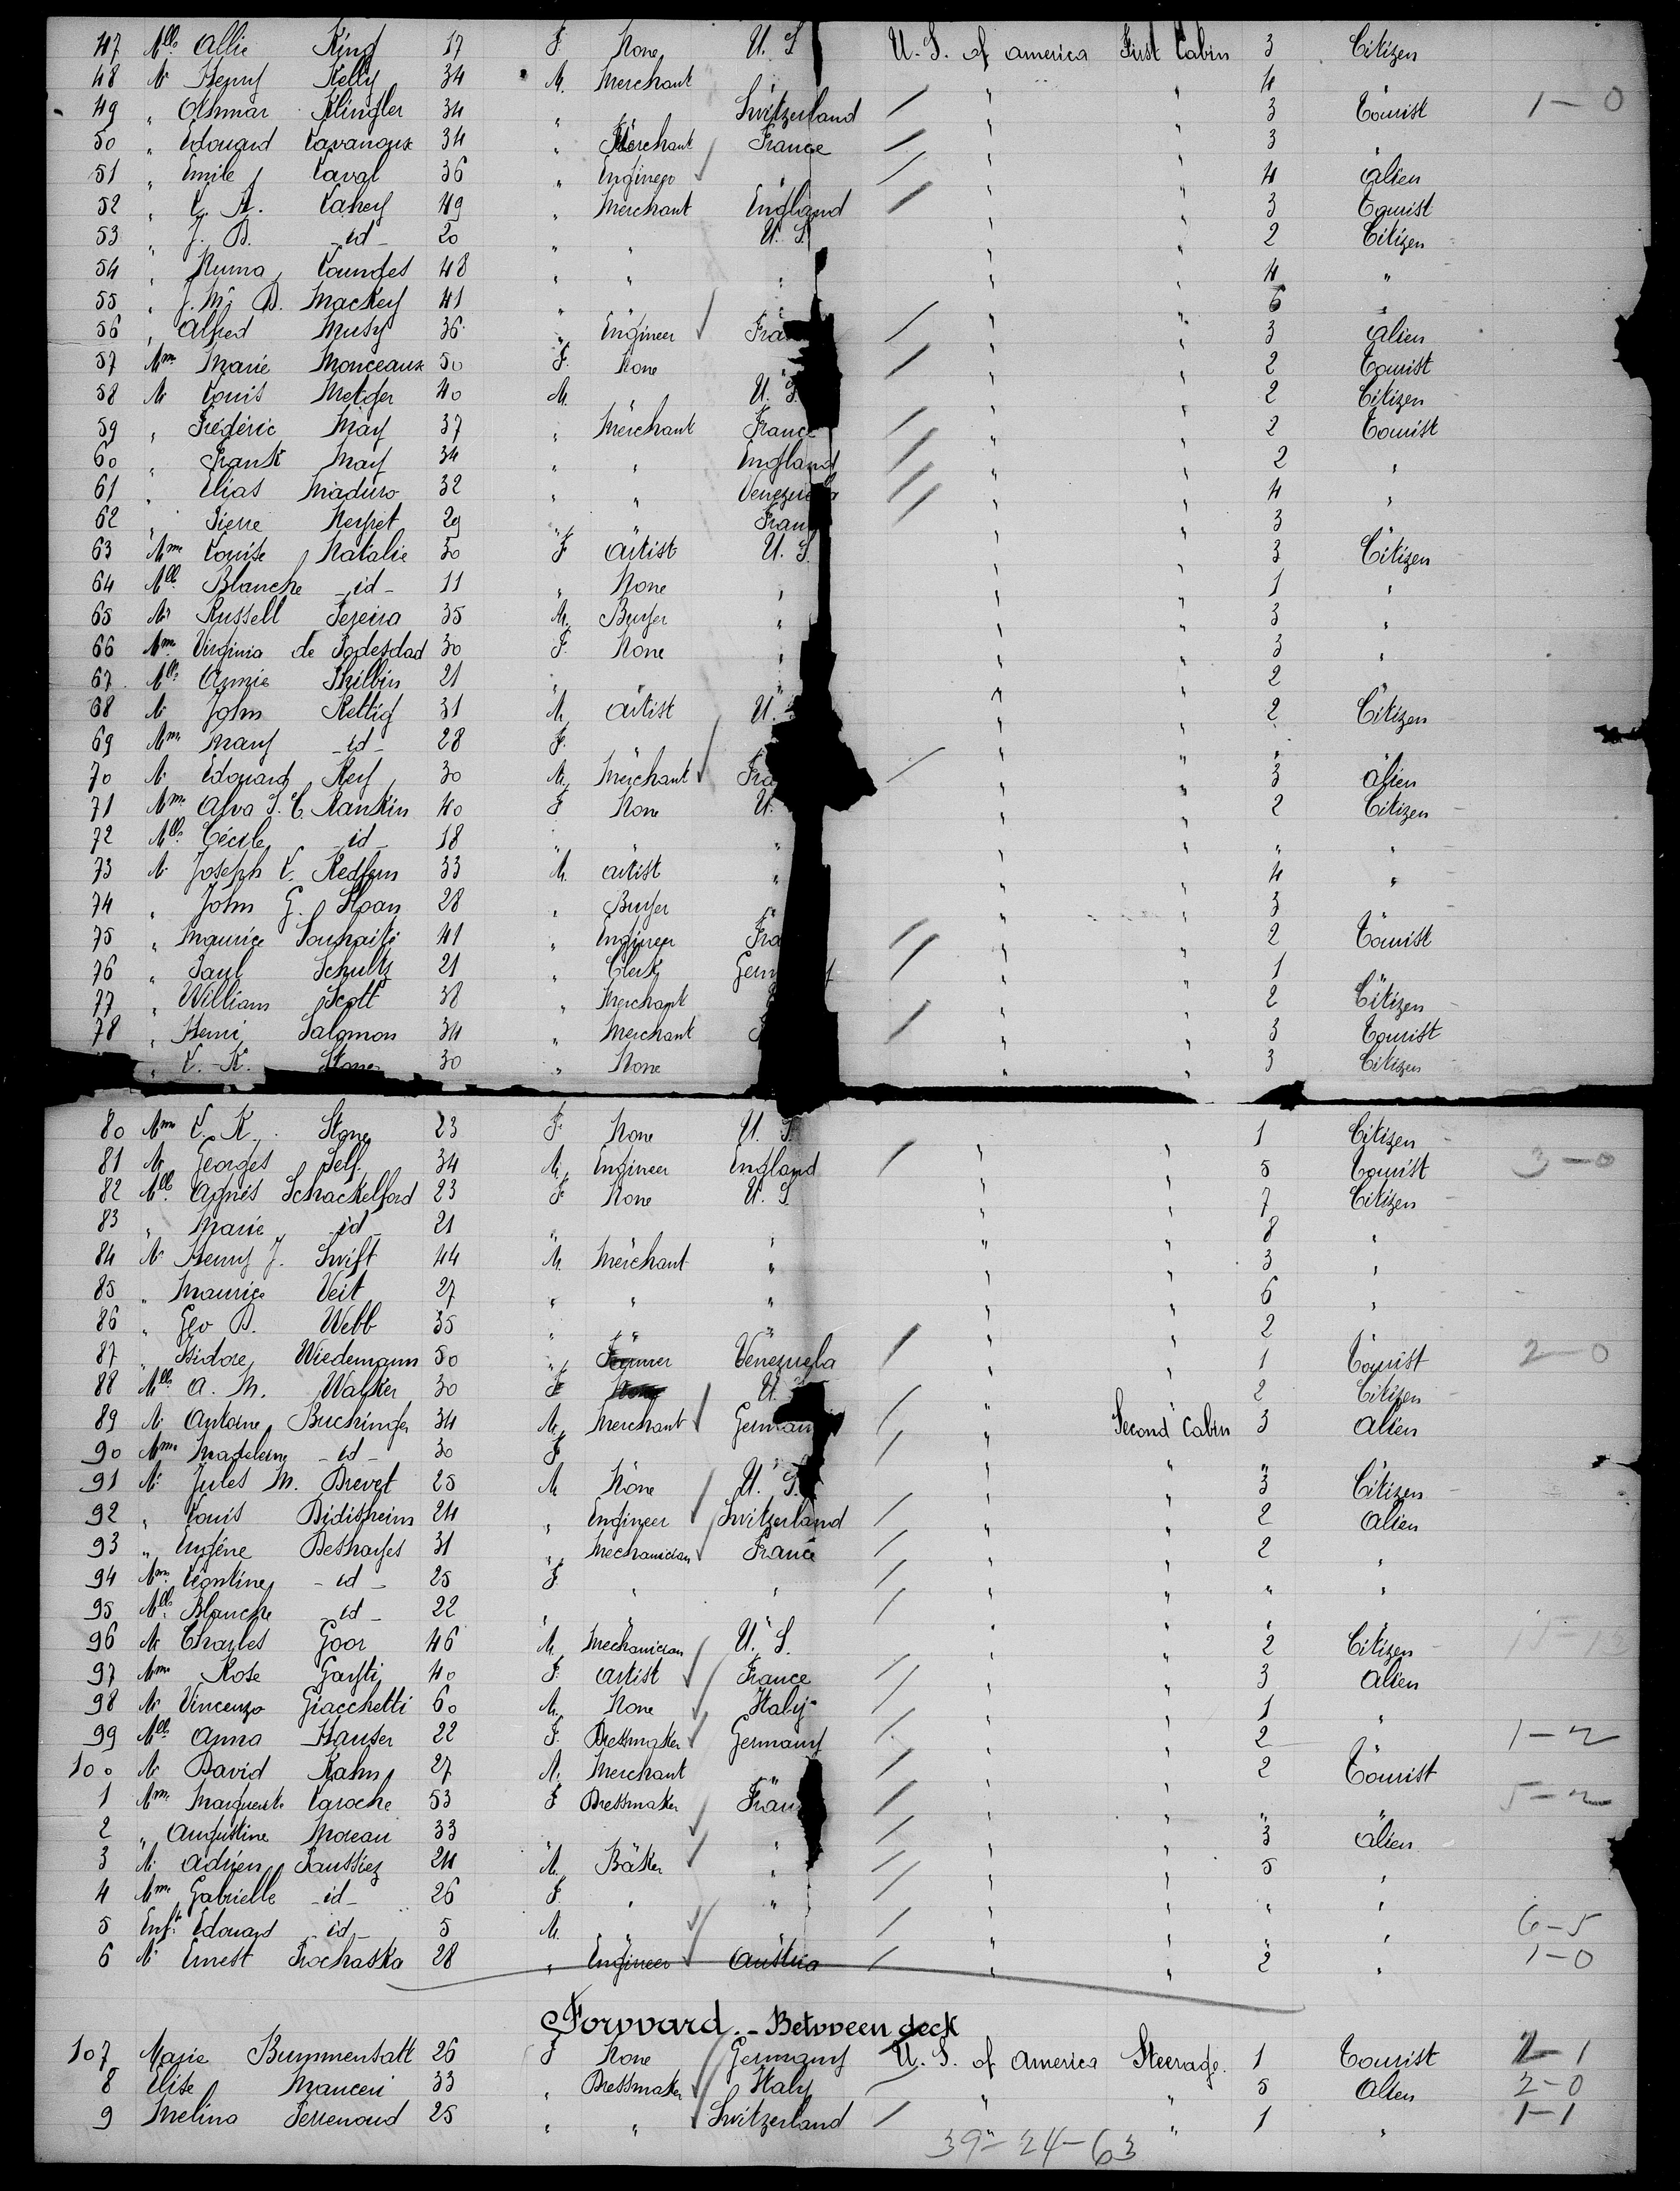 47 Mlle Allie King 17 F. None U. S U. S. of America First Cabin 3 Citizen
48 Mr Henry Kelly 34 M. Merchant " " " 4 "
49 " Othmar Klingler 34 " " Switzerland " " 3 Tourist 1-0
50 " Edouard Lavanoux 34 " Merchant France " " 3 "
51 " Emile Laval 36 " Engineer " " " 4 Alien
52 " L. A. Lahey 49 " Merchant England " " 3 Tourist
53 " J. B. -id- 20 " " U. S " " 2 Citizen
54 " Numa Lounges 48 " " " " " 4 "
55 " J. Mc D. Mackey 41 " " " " " 6 "
56 " Alfred Musy 36 " Engineer Fra " " 3 Alien
57 Mme Marie Monceaux 50 F. None " " " 2 Tourist
58 Mr Louis Metzger 40 M. " U. S. " " 2 Citizen
59 " Frédéric May 37 " Merchant France " " 2 Tourist
60 " Frank May 34 " " England " " 2 "
61 " Elias Maduro 32 " " Venezuela " " 4 "
62 " Pierre Neyret 29 " " Fran " " 3 "
63 Mme Louise Natalie 30 F Artist U. S. " " 3 Citizen
64 Mlle Blanche -id- 11 " None " " " 1 "
65 Mr Russell Pereira 35 M. Buyer " " " 3 "
66 Mme Virginia de Podesdad 30 F. None " " " 3 "
67 Mlle Annie Philbin 21 " " " " 2 "
68 Mr John Rettig 31 M. Artist U. " " 2 Citizen
69 Mme Mary -id- 28 F. " " " "
70 Mr Edouard Rey 30 M. Merchant Fra " " 3 Alien
71 Mme Alva S. C. Rankin 40 F None U. " " 2 Citizen
72 Mlle Cécile -id- 18 " " " " " " "
73 Mr Joseph L. Redfern 33 M. Artist " " " 4 "
74 " John G. Sloan 28 " Buyer " " " 3 "
75 " Maurice Souhaiti 41 " Engineer Fra " " 2 Tourist
76 " Paul Schultz 21 " Clerk Germ y " " 1 "
77 " William Scott 38 " Merchant " " 2 Citizen
78 " Henri Salomon 34 " Merchant " " 3 Tourist
" L. K. Stone 30 " None " " 3 Citizen
80 Mme L. K. Stone 23 F. None U. S. " " 1 Citizen
81 Mr Georges Self 34 M. Engineer England " " 5 Tourist 3-0
82 Mlle Agnés Schackelford 23 F. None U. S. " " 7 Citizen
83 " Marie -id- 21 " " " " " 8 "
84 Mr Henry J. Swift 44 M. Merchant " " " 3 "
85 " Maurice Veit 27 " " " " " 6 "
86 " Geo D. Webb 35 " " " " " 2 "
87 " Isidore Wiedemann 50 " Farmer Venezuela " " 1 Tourist 2-0
88 Mlle A. M. Walker 30 F None U. S " " 2 Citizen
89 Mr Antoine Buchinger 34 M. Merchant German " Second Cabin 3 Alien
90 Mme Madeleine -id- 30 F " " " "
91 Mr Jules M. Brevet 25 M None U. S. " " 3 Citizen
92 " Louis Didisheim 24 " Engineer Switzerland " " 2 Alien
93 " Eugéne Deshayes 31 " Mechanician France " " 2 "
94 Mme Léontine -id- 25 F. " " " " " "
95 Mlle Blanche -id- 22 " " " " " " "
96 Mr Charles Goor 46 M. Mechanician U. S. " " 2 Citizen
97 Mme Rose Gayti 40 F. Artist France " " 3 Alien
98 Mr Vincenzo Giacchetti 60 M. None Italy " " 1 "
99 Mlle Anna Hauser 22 F. Dressmaker Germany " " 2 " 1-2
100 Mr David Kahn 27 M. Merchant " " " 2 Tourist
1 Mme Marguerite Laroche 53 F Dressmaker Fran " " " " 5-2
2 " Augustine Moreau 33 " " " " " 3 Alien
3 Mr Adrien Paussiez 24 M. Baker " " " 5 "
4 Mme Gabrielle -id- 26 F. " " " " " "
5 Enft Edouard -id- 5 M. " " " " " " 6-5
6 Mr Ernest Prochaska 28 " Engineer Austria " " 2 " 1-0
Forward. - Between deck
107 Marie Bummensatt 26 F None Germany U. S. of America Steerage. 1 Tourist 2-1
8 Elise Manceri 33 " Dressmaker Italy " " 5 Alien 2-0
9 Melina Perrenoud 25 " " Switzerland " " 1 " 1-1
39-24-63